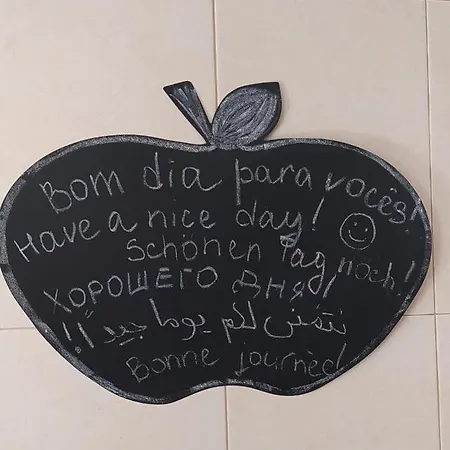 Bom dia para vocês!
Have a nice day!
Schönen Tag noch!
ХОРОШЕГО ДНЯ!
نتمنى لكم يوما جيدا!!
Bonne journeé